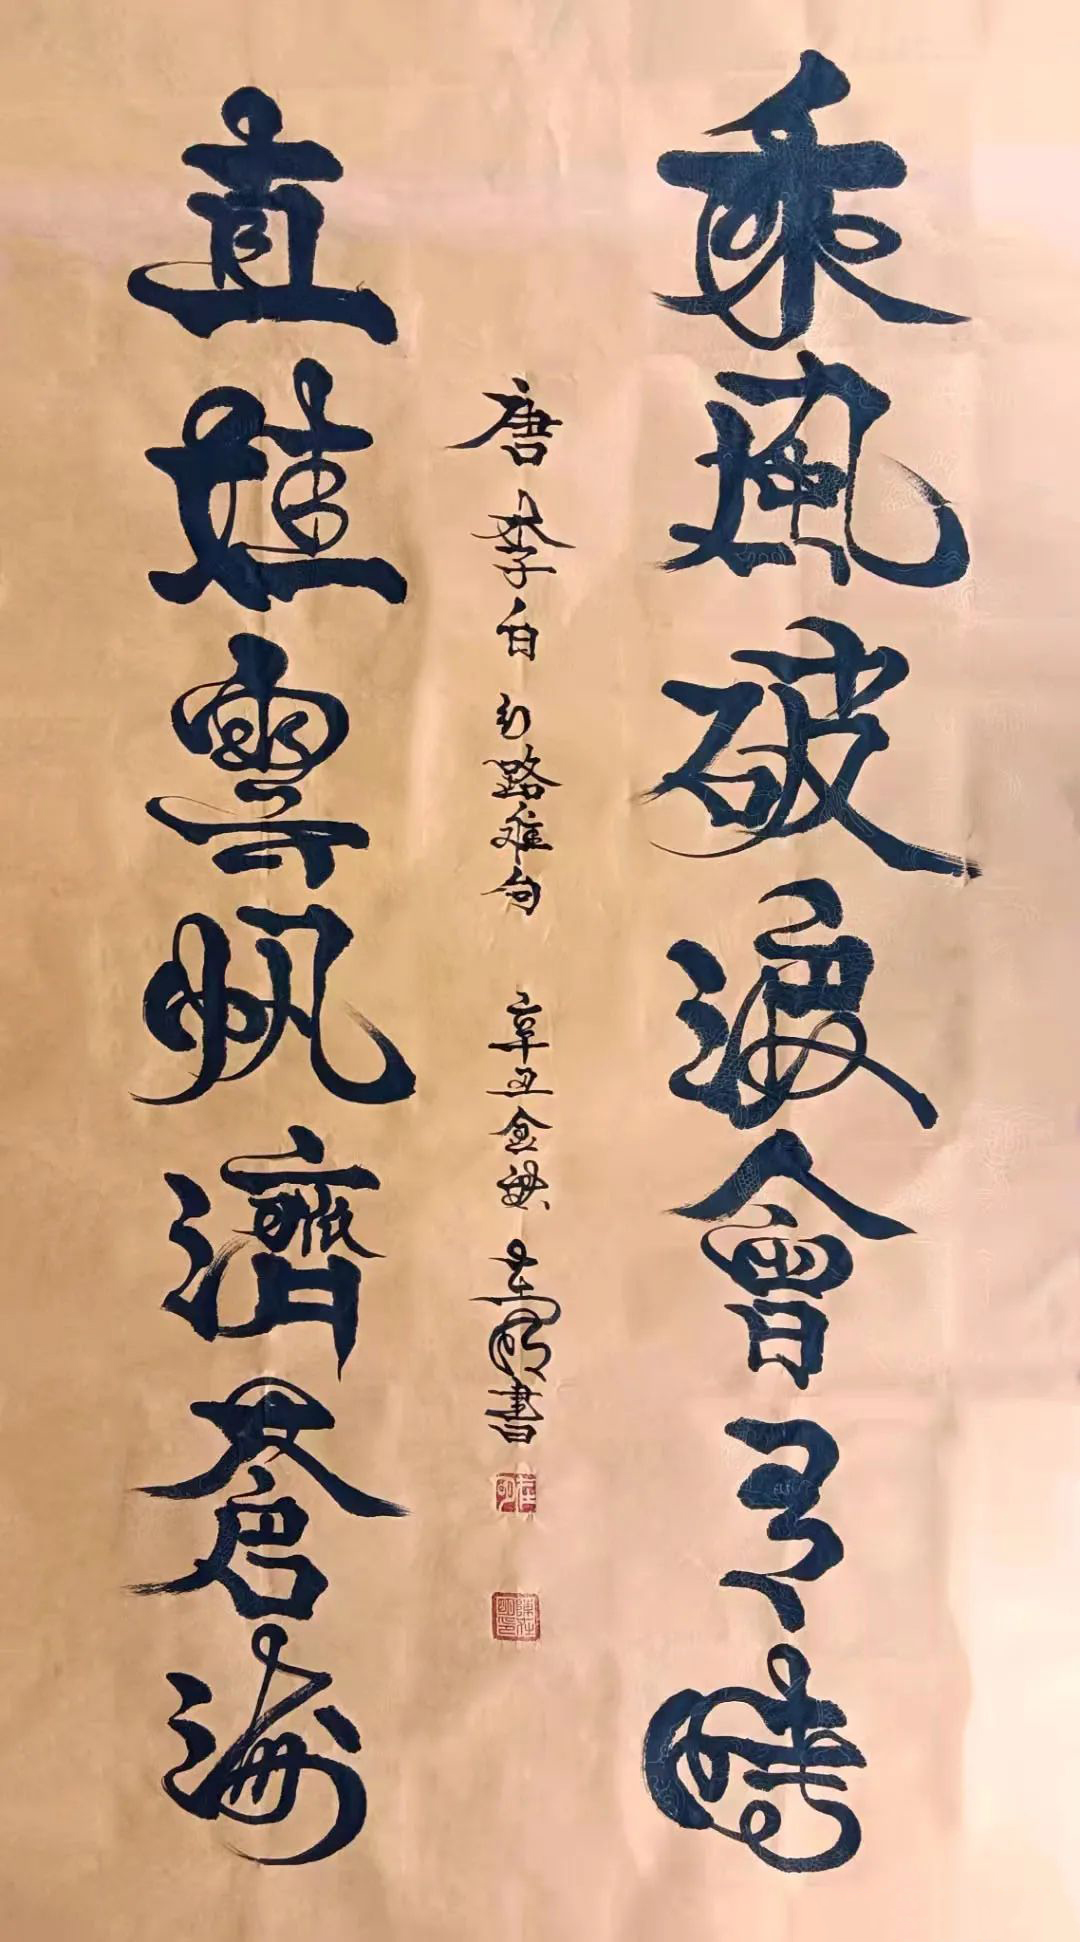 乘風破浪會有時
直挂雲帆濟蒼海
唐李白行路难句 辛丑金秋 書